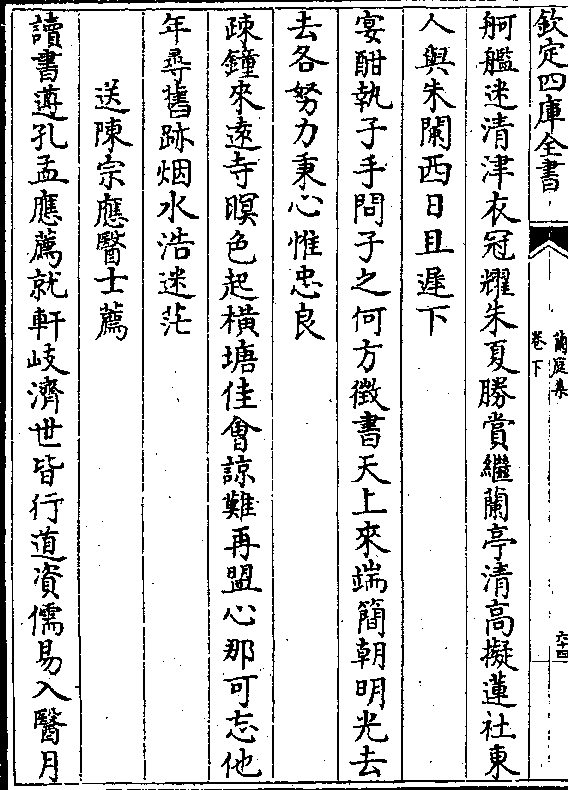 欽定四庫全書
蘭庭集
卷下
六十四
舸艦迷清津衣冠耀朱夏勝賞繼蘭亭清高擬蓮社東
人與朱闌西日且遲下
宴酣執子手問子之何方徵書天上來端簡朝明光去
去各努力秉心惟忠良
疎鐘來遠寺暝色起橫塘佳會諒難再盟心那可忘他
年尋舊跡烟水浩迷茫
送陳宗應醫士薦
讀書遵孔孟應薦就軒岐濟世皆行道資儒易入醫月